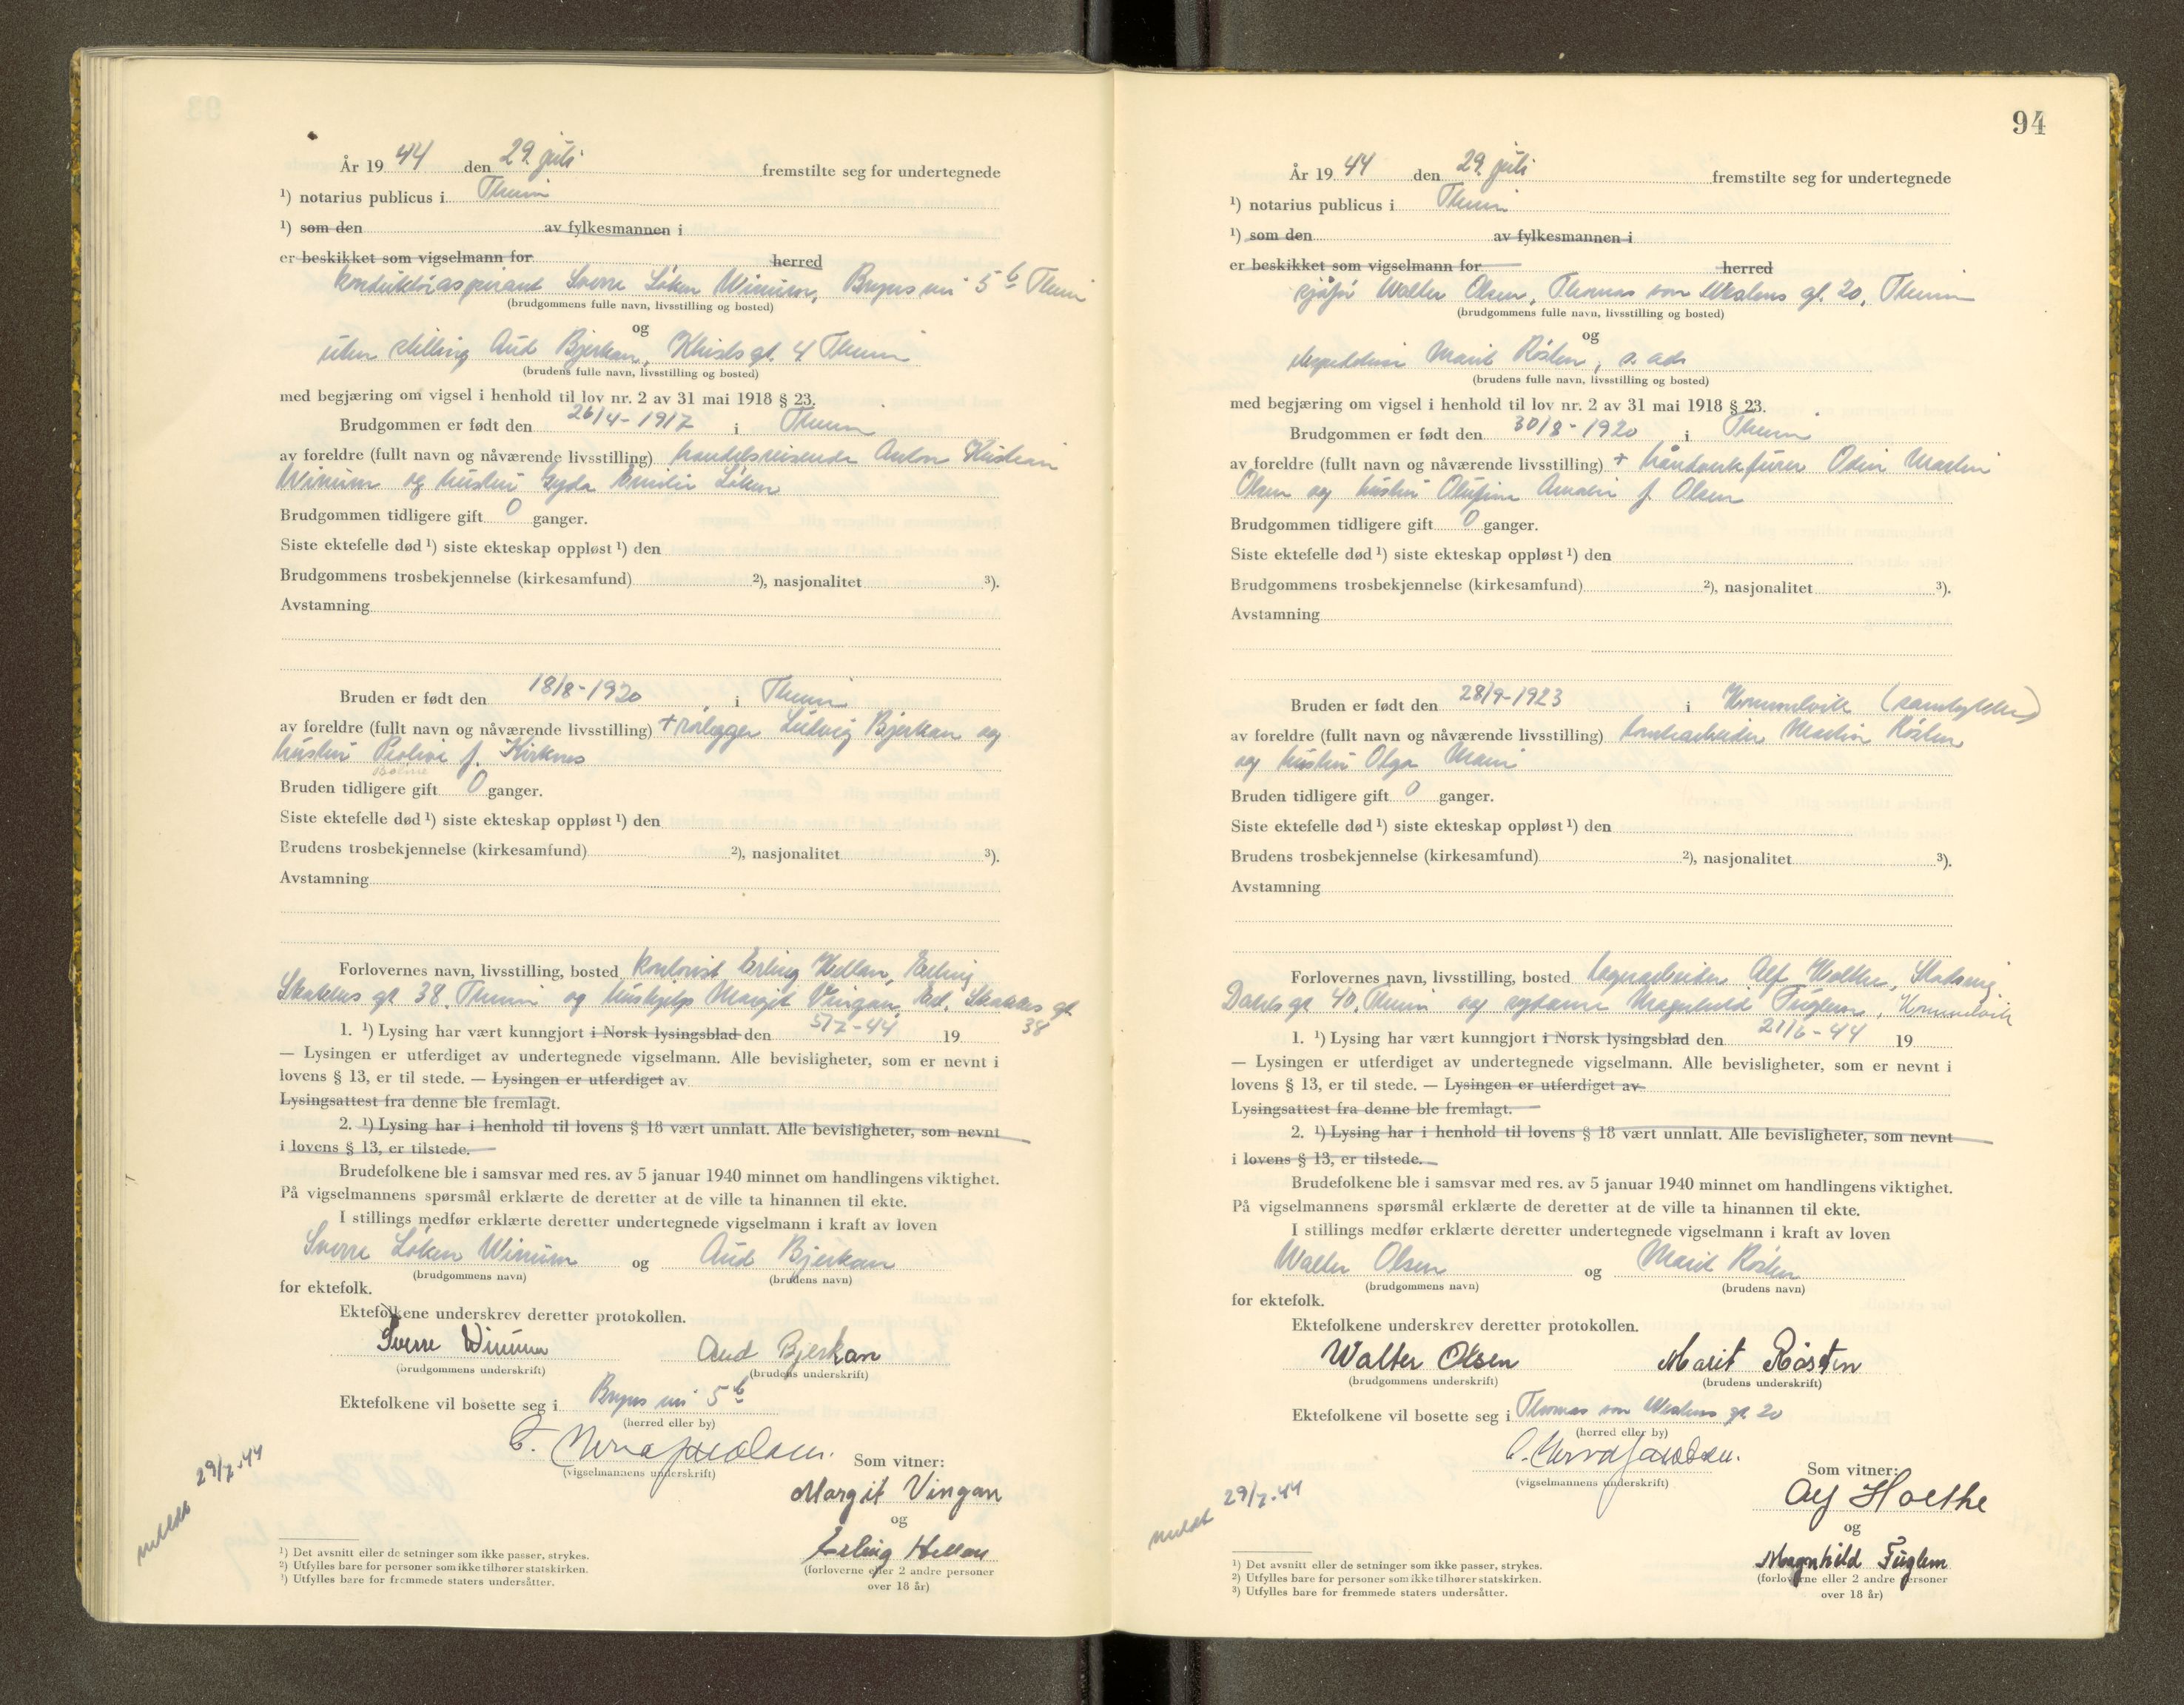 År 1944 den 29. juli fremstilte seg for undertegnede
¹) notarius publicus i Thum
¹) som den av fylkesmannen i
er beskikket som vigselmann for herred
konduktøraspirant Sverre Løken Winum, Bryns 5 b Thum
(brudgommens fulle navn, livsstilling og bosted)
og
uten stilling Aud Bjerkan, gt. 4 Thum
(brudens fulle navn, livsstilling og bosted)
med begjæring om vigsel i henhold til lov nr. 2 av 31 mai 1918 § 23.
Brudgommen er født den 26/4-1917 i Thum
av foreldre (fullt navn og nåværende livsstilling) handelsreisende Anton Kristian
Winum og hustru Gyda Emilie Løken
Brudgommen tidligere gift 0 ganger.
Siste ektefelle død ¹) siste ekteskap oppløst ¹) den
Brudgommens trosbekjennelse (kirkesamfund) ²), nasjonalitet ³).
Avstamning
Bruden er født den 18/8-1920 i Thum
av foreldre (fullt navn og nåværende livsstilling) + rørlegger Ludvig Bjerkan og
hustru f. Kirknes
Bruden tidligere gift 0 ganger.
Siste ektefelle død ¹) siste ekteskap oppløst ¹) den
Brudens trosbekjennelse (kirkesamfund) ²), nasjonalitet ³).
Avstamning
Forlovernes navn, livsstilling, bosted kontorist Erling Hellan, Erling
Skakkes gt 38, Thum og hushjelp Margit Vingan, Erl. Skakkes gt
38
1. ¹) Lysing har vært kunngjort i Norsk lysingsblad den 5/7-44 19
— Lysingen er utferdiget av undertegnede vigselmann. Alle bevisligheter, som er nevnt i
lovens § 13, er til stede. — Lysingen er utferdiget av
Lysingsattest fra denne ble fremlagt.
2. ¹) Lysing har i henhold til lovens § 18 vært unnlatt. Alle bevisligheter, som nevnt
i lovens § 13, er tilstede.
Brudefolkene ble i samsvar med res. av 5 januar 1940 minnet om handlingens viktighet.
På vigselmannens spørsmål erklærte de deretter at de ville ta hinannen til ekte.
I stillings medfør erklærte deretter undertegnede vigselmann i kraft av loven
Sverre Løken Winum og Aud Bjerkan
(brudgommens navn) (brudens navn)
for ektefolk.
Ektefolkene underskrev deretter protokollen.
Sverre Winum Aud Bjerkan
(brudgommens underskrift) (brudens underskrift)
Ektefolkene vil bosette seg i Bryns 5 b
(herred eller by)
(vigselmannens underskrift)
Som vitner:
Margit Vingan
og
Erling Hellan
(forloverne eller 2 andre personer
over 18 år)
meldt 29/7-44
¹) Det avsnitt eller de setninger som ikke passer, strykes.
²) Utfylles bare for personer som ikke tilhører statskirken.
³) Utfylles bare for fremmede staters undersåtter.
94
År 1944 den 29. juli fremstilte seg for undertegnede
¹) notarius publicus i Thum
¹) som den av fylkesmannen i
er beskikket som vigselmann for herred
sjåfør Walter Olsen, Thomas von Westens gt. 20, Thum
(brudgommens fulle navn, livsstilling og bosted)
og
Marit Røsten, s. ads
(brudens fulle navn, livsstilling og bosted)
med begjæring om vigsel i henhold til lov nr. 2 av 31 mai 1918 § 23.
Brudgommen er født den 30/8-1920 i Thum
av foreldre (fullt navn og nåværende livsstilling) + håndverkfører Odin Martin
Olsen og hustru Olufine Amalie f. Olsen
Brudgommen tidligere gift 0 ganger.
Siste ektefelle død ¹) siste ekteskap oppløst ¹) den
Brudgommens trosbekjennelse (kirkesamfund) ²), nasjonalitet ³).
Avstamning
Bruden er født den 28/9-1923 i
av foreldre (fullt navn og nåværende livsstilling) Martin Røsten
og hustru Olga Marie
Bruden tidligere gift 0 ganger.
Siste ektefelle død ¹) siste ekteskap oppløst ¹) den
Brudens trosbekjennelse (kirkesamfund) ²), nasjonalitet ³).
Avstamning
Forlovernes navn, livsstilling, bosted lagerarbeider Alf Holthe,
Dahls gt 40, Thum og sydame Magnhild Fuglem,
1. ¹) Lysing har vært kunngjort i Norsk lysingsblad den 21/6-44 19
— Lysingen er utferdiget av undertegnede vigselmann. Alle bevisligheter, som er nevnt i
lovens § 13, er til stede. — Lysingen er utferdiget av
Lysingsattest fra denne ble fremlagt.
2. ¹) Lysing har i henhold til lovens § 18 vært unnlatt. Alle bevisligheter, som nevnt
i lovens § 13, er tilstede.
Brudefolkene ble i samsvar med res. av 5 januar 1940 minnet om handlingens viktighet.
På vigselmannens spørsmål erklærte de deretter at de ville ta hinannen til ekte.
I stillings medfør erklærte deretter undertegnede vigselmann i kraft av loven
Walter Olsen og Marit Røsten
(brudgommens navn) (brudens navn)
for ektefolk.
Ektefolkene underskrev deretter protokollen.
Walter Olsen Marit Røsten
(brudgommens underskrift) (brudens underskrift)
Ektefolkene vil bosette seg i Thomas von Westens gt 20
(herred eller by)
(vigselmannens underskrift)
Som vitner:
Alf Holthe
og
Magnhild Fuglem
(forloverne eller 2 andre personer
over 18 år)
meldt 29/7-44
¹) Det avsnitt eller de setninger som ikke passer, strykes.
²) Utfylles bare for personer som ikke tilhører statskirken.
³) Utfylles bare for fremmede staters undersåtter.